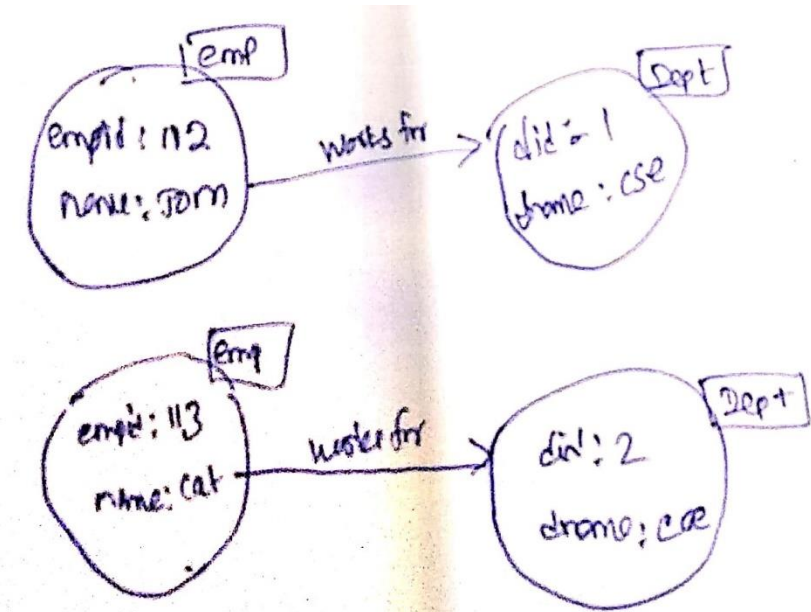 emp
empid: 112
name: Tom
works for
Dept
did: 1
dname: cse
emp
empid: 113
name: cat
works for
Dept
did: 2
dname: